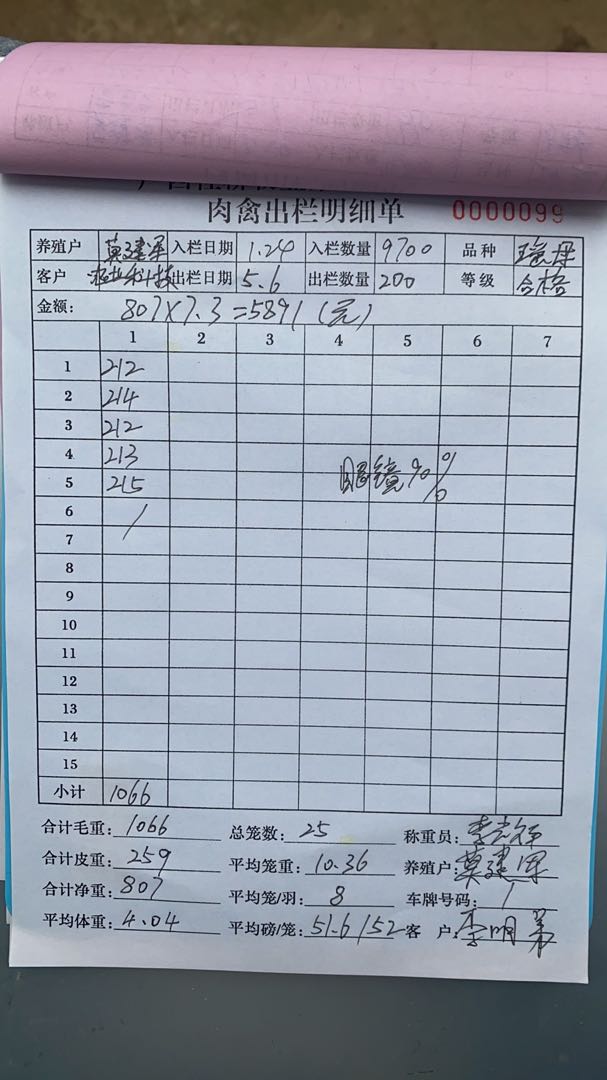 肉禽出栏明细单 0000099
养殖户 莫建军 入栏日期 1.24 入栏数量 9700 品种 瑞丹
客户 科技 出栏日期 5.6 出栏数量 200 等级 合格
金额: 807×7.3=5891(元)
1 2 3 4 5 6 7
1 212
2 214
3 212
4 213
5 215 眼镜90%
6 /
7
8
9
10
11
12
13
14
15
小计 1066
合计毛重: 1066 总笼数: 25 称重员:
合计皮重: 259 平均笼重: 10.36 养殖户: 莫建军
合计净重: 807 平均笼/羽: 8 车牌号码: /
平均体重: 4.04 平均磅/笼: 51.6/52 客 户: 李明弟